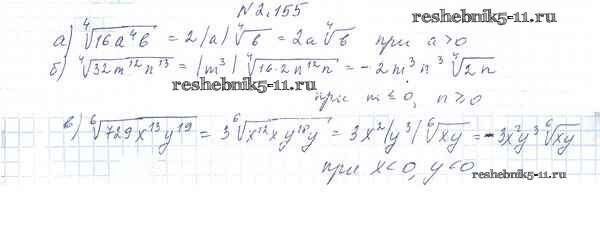 №2.155
reshebnik5-11.ru
а) ⁴√(16a⁴b) = 2|a| ⁴√b = 2a ⁴√b при a>0
б) ⁴√(32m¹²n¹³) = |m³| ⁴√(16·2n¹²n) = -2m³n³ ⁴√(2n)
reshebnik5-11.ru
при m≤0, n≥0
в) ⁶√(729x¹³y¹⁹) = 3 ⁶√(x¹²xy¹⁸y) = 3x²|y³| ⁶√(xy) = -3x²y³ ⁶√(xy)
при x<0, y<0
reshebnik5-11.ru